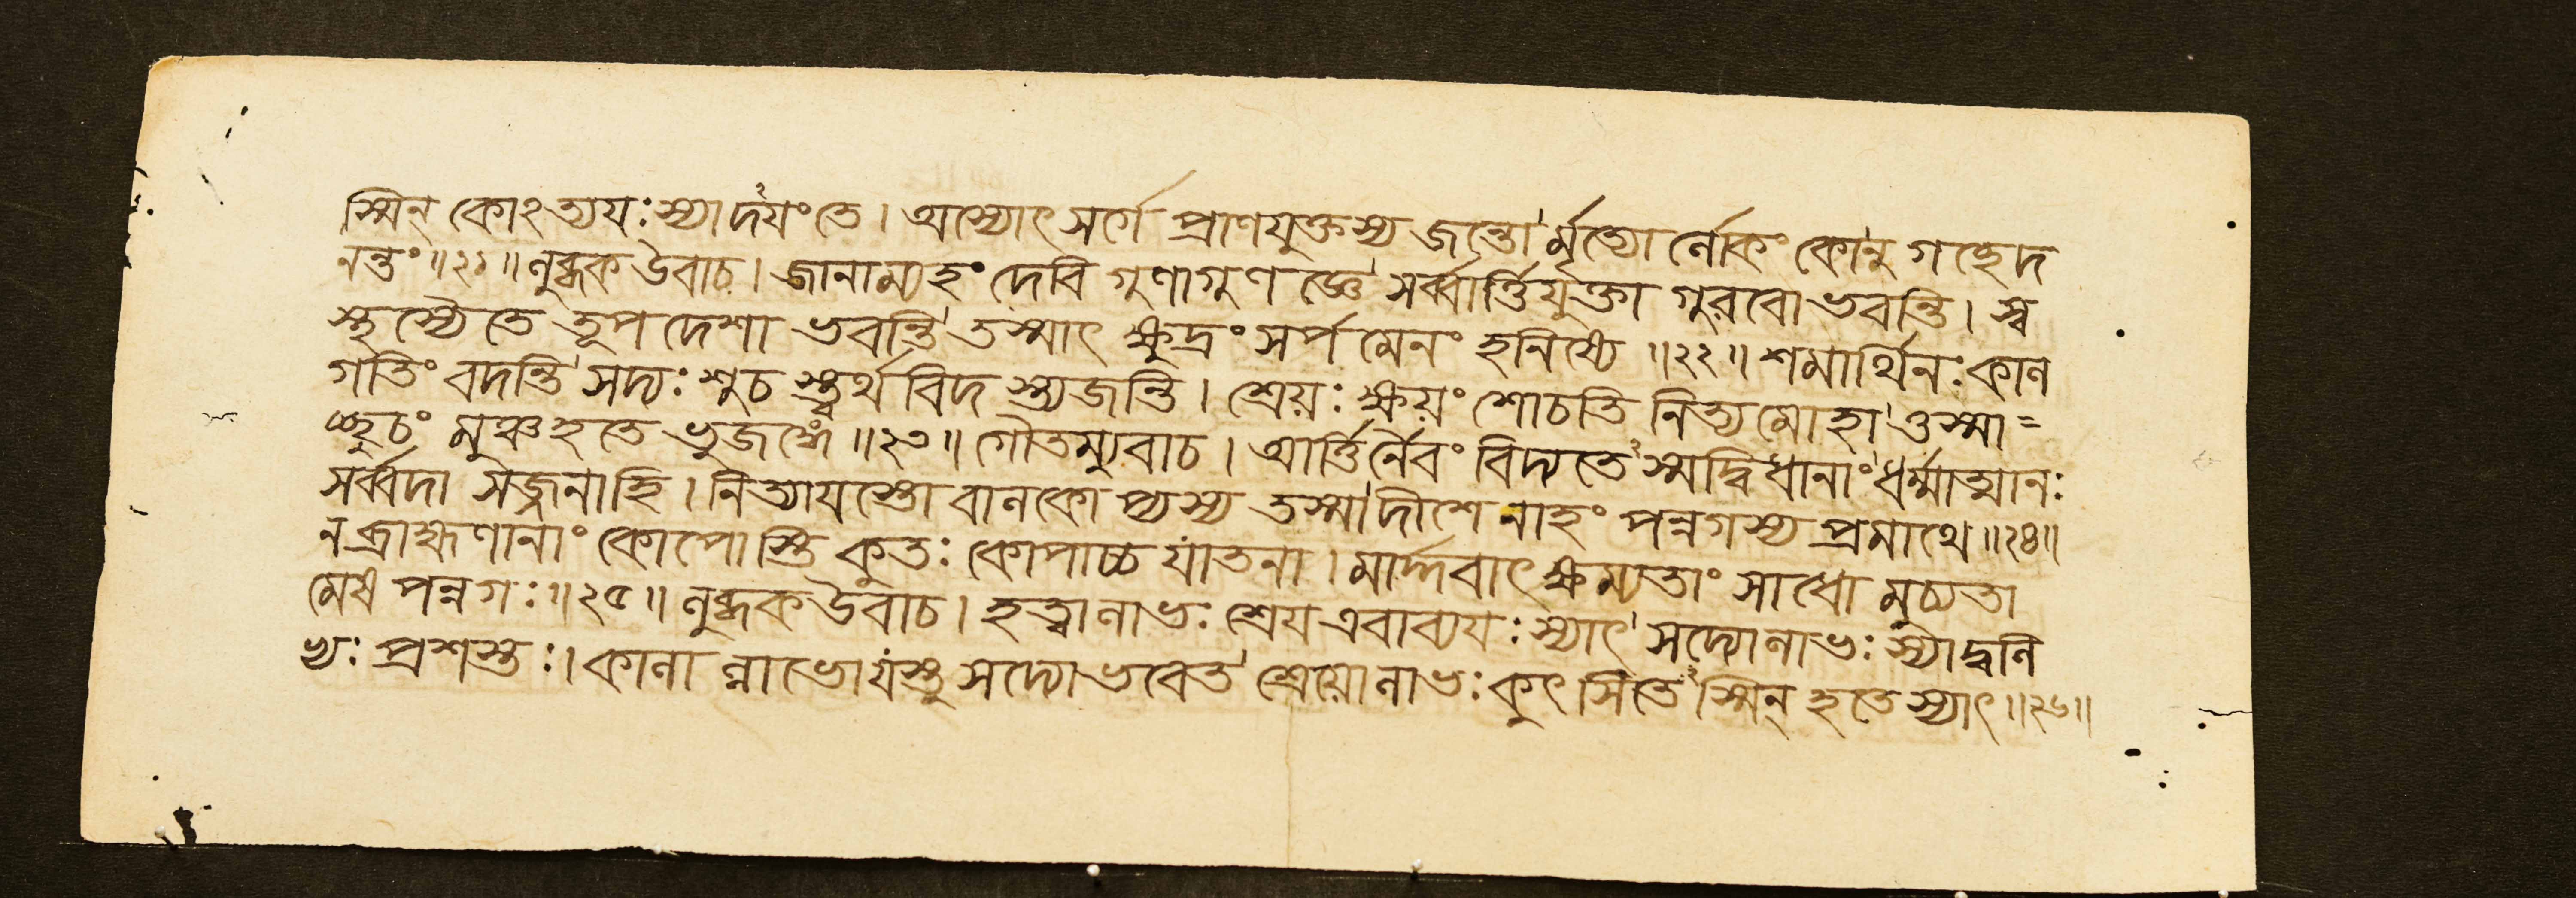 স্মিন্ কোঽত্যযঃ স্যাদযং তে। অস্যোৎসর্গে প্রাণযুক্তস্য জন্তোর্মৃত্যোর্লোকং কোনু গচ্ছেদ
নন্তং॥২১॥ লুব্ধক উবাচ। জানাম্যহং দেবি গুণাগুণজ্ঞে সর্ব্বার্ত্তিযুক্তা গুরবো ভবন্তি। স্ব
স্থস্যৈতে তূপদেশা ভবন্তি তস্মাৎ ক্ষুদ্রং সর্পমেনং হনিষ্যে॥২২॥ শমার্থিনঃ কাল
গতিং বদন্তি সদ্যঃ শুচস্ত্বর্থবিদস্ত্যজন্তি। শ্রেয়ঃ ক্ষয়ং শোচতি নিত্যমোহাত্তস্মা=
চ্ছুচং মুঞ্চ হতে ভুজঙ্গে॥২৩॥ গৌতম্যুবাচ। আর্ত্তির্নৈবং বিদ্যতেঽস্মদ্বিধানাং ধর্ম্মাত্মানঃ
সর্ব্বদা সজ্জনাহি। নিত্যাযস্তো বালকোপ্যস্য তস্মাদীশে নাহং পন্নগস্য প্রমাথে॥২৪॥
ন ব্রাহ্মণানাং কোপোস্তি কুতঃ কোপাচ্চ যাতনা। মার্দ্দবাৎ ক্ষম্যতাং সাধো মুচ্যতা
মেষ পন্নগঃ॥২৫॥ লুব্ধক উবাচ। হত্বা লাভঃ শ্রেয এবাব্যযঃ স্যাৎ সদ্যোলাভঃ স্যাদ্বলি
ভ্যঃ প্রশস্তঃ। কালাল্লাভো যস্তু সদ্যো ভবেত শ্রেয়োলাভঃ কুৎসিতেঽস্মিন্ হতে স্যাৎ॥২৬॥